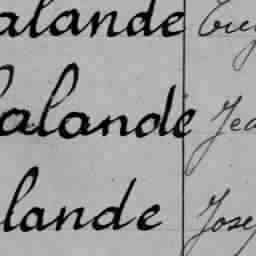 alande Eug
Lalande Jea
lande Josep